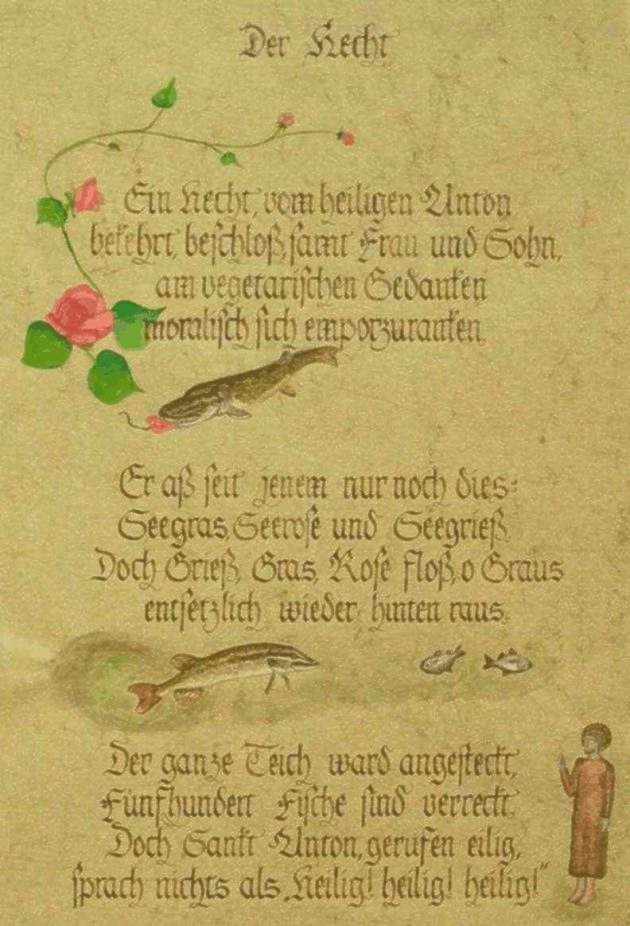 Der Hecht
Ein Hecht, vom heiligen Anton
bekehrt, beschloß, samt Frau und Sohn,
am vegetarischen Gedanken
moralisch sich emporzuranken.
Er aß seit jenem nur noch dies:
Seegras, Seerose und Seegrieß.
Doch Grieß, Gras, Rose floß, o Graus
entsetzlich wieder hinten raus.
Der ganze Teich ward angesteckt,
Fünfhundert Fische sind verreckt.
Doch Sankt Anton, gerufen eilig,
sprach nichts als „Heilig! heilig! heilig!"